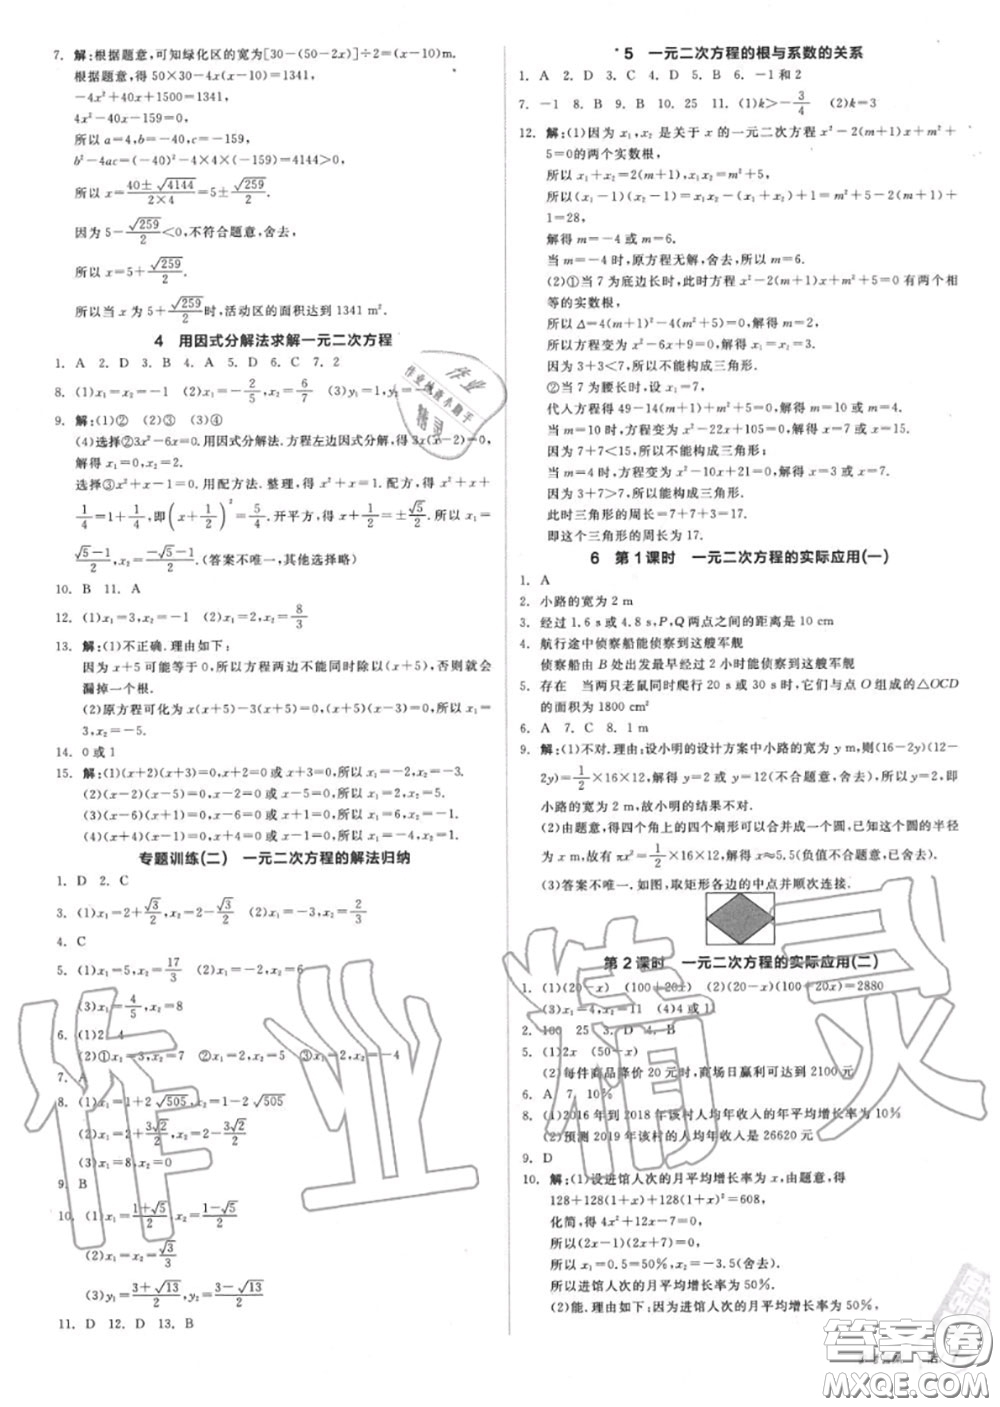 7. 解:根据题意,可知绿化区的宽为[30-(50-2x)]÷2=(x-10)m.
根据题意,得 50×30-4x(x-10)=1341,
-4x²+40x+1500=1341,
4x²-40x-159=0,
所以 a=4,b=-40,c=-159,
b²-4ac=(-40)²-4×4×(-159)=4144>0,
所以 x=(40±√4144)/(2×4)=5±√259/2.
因为 5-√259/2<0,不符合题意,舍去,
所以 x=5+√259/2.
所以当 x 为 5+√259/2时,活动区的面积达到 1341 m².
4 用因式分解法求解一元二次方程
1. A 2. D 3. B 4. A 5. D 6. C 7. 2
8. (1)x₁=x₂=1 (2)x₁=-2/5,x₂=6/7 (3)y₁=1,y₂=
9. 解:(1)② (2)③ (3)④
(4)选择②3x²-6x=0.用因式分解法.方程左边因式分解,得 3x(x-2)=0,
解得 x₁=0,x₂=2.
选择③x²+x-1=0.用配方法.整理,得 x²+x=1.配方,得 x²+x+
1/4=1+1/4,即(x+1/2)²=5/4.开平方,得 x+1/2=±√5/2.所以 x₁=
(√5-1)/2,x₂=(-√5-1)/2.(答案不唯一,其他选择略)
10. B 11. A
12. (1)x₁=3,x₂=-1 (2)x₁=2,x₂=8/3
13. 解:(1)不正确.理由如下:
因为 x+5 可能等于 0,所以方程两边不能同时除以(x+5),否则就会
漏掉一个根.
(2)原方程可化为 x(x+5)-3(x+5)=0,(x-3)(x+5)=0,所以 x₁=
3,x₂=-5.
14. 0 或 1
15. 解:(1)(x+2)(x+3)=0,x+2=0 或 x+3=0,所以 x₁=-2,x₂=-3.
(2)(x-2)(x-5)=0,x-2=0 或 x-5=0,所以 x₁=2,x₂=5.
(3)(x-6)(x+1)=0,x-6=0 或 x+1=0,所以 x₁=6,x₂=-1.
(4)(x+4)(x-1)=0,x+4=0 或 x-1=0,所以 x₁=-4,x₂=1.
专题训练(二) 一元二次方程的解法归纳
1. D 2. C
3. (1)x₁=2+√3/2,x₂=2-√3/2 (2)x₁=0,x₂=2/3
4. C
5. (1)x₁=5,x₂=17/3 (2)x₁=0,x₂=
(3)x₁=4/5,x₂=8
6. (1)2 4
(2)①x₁=3,x₂=7 ②x₁=-1,x₂=3 ③x₁=2,x₂=-4
7. A
8. (1)x₁=1+2√505,x₂=1-2√505
(2)x₁=2+3√2/2,x₂=2-3√2/2
(3)x₁=8,x₂=0
9. B
10. (1)x₁=(1+√5)/2,x₂=(1-√5)/2
(2)x₁=x₂=√3/3
(3)y₁=(3+√13)/2,y₂=(3-√13)/2
11. D 12. D 13. B
*5 一元二次方程的根与系数的关系
1. A 2. D 3. C 4. D 5. B 6. -1 和 2
7. -1 8. B 9. B 10. 25 11. (1)k>-3/4 (2)k=3
12. 解:(1)因为 x₁,x₂ 是关于 x 的一元二次方程 x²-2(m+1)x+m²+
5=0的两个实数根,
所以 x₁+x₂=2(m+1),x₁x₂=m²+5,
所以(x₁-1)(x₂-1)=x₁x₂-(x₁+x₂)+1=m²+5-2(m+1)+
1=28,
解得 m=-4 或 m=6.
当 m=-4 时,原方程无解,舍去,所以 m=6.
(2)①当 7 为底边长时,此时方程 x²-2(m+1)x+m²+5=0 有两个相
等的实数根,
所以 Δ=4(m+1)²-4(m²+5)=0,解得 m=2.
所以方程变为 x²-6x+9=0,解得 x₁=x₂=3.
因为 3+3<7,所以不能构成三角形.
②当 7 为腰长时,设 x₁=7,
代入方程得 49-14(m+1)+m²+5=0,解得 m=10 或 m=4.
当 m=10 时,方程变为 x²-22x+105=0,解得 x=7 或 x=15.
因为 7+7<15,所以不能构成三角形;
当 m=4 时,方程变为 x²-10x+21=0,解得 x=3 或 x=7.
因为 3+7>7,所以能构成三角形.
此时三角形的周长=7+7+3=17.
即这个三角形的周长为 17.
6 第 1 课时 一元二次方程的实际应用(一)
1. A
2. 小路的宽为 2 m
3. 经过 1.6 s 或 4.8 s,P,Q 两点之间的距离是 10 cm
4. 航行途中侦察船能侦察到这艘军舰
侦察船由 B 处出发最早经过 2 小时能侦察到这艘军舰
5. 存在 当两只老鼠同时爬行 20 s 或 30 s 时,它们与点 O 组成的△OCD
的面积为 1800 cm²
6. A 7. C 8. 1 m
9. 解:(1)不对.理由:设小明的设计方案中小路的宽为 y m,则(16-2y)(12-
2y)=1/2×16×12,解得 y=2 或 y=12(不合题意,舍去),所以
小路的宽为 2 m,故小明的结果不对.
(2)由题意,得四个角上的四个扇形可以合并成一个圆,设这个圆的半径
为 x m,故有 πx²=1/2×16×12,解得 x≈5.5(负值不合题意,舍去).
(3)答案不唯一.如图,取矩形各边的中点并顺次连接.
第 2 课时 一元二次方程的实际应用(二)
1. (1)(20-x) (100+20x) (2)(20-x)(100+20x)=2880
(3)x₁=4,x₂=11 (4)4 或 11
2. 100 25 3. D 4. B
5. (1)2x (50-x)
(2)每件商品降价 20 元时,商场日赢利可达到 2100 元
6. A 7. 10%
8. (1)2016 年到 2018 年该村人均年收入的年平均增长率为 10%
(2)预测 2019 年该村的人均年收入是 26620 元
9. D
10. 解:(1)设进馆人次的月平均增长率为 x,由题意,得
128+128(1+x)+128(1+x)²=608,
化简,得 4x²+12x-7=0,
所以(2x-1)(2x+7)=0,所以 x₁=0.5,x₂=-3.5(舍去).
所以进馆人次的月平均增长率为 50%.
(2)能.理由如下:因为进馆人次的月平均增长率为 50%,
作业精灵
答案圈
MXQE.COM